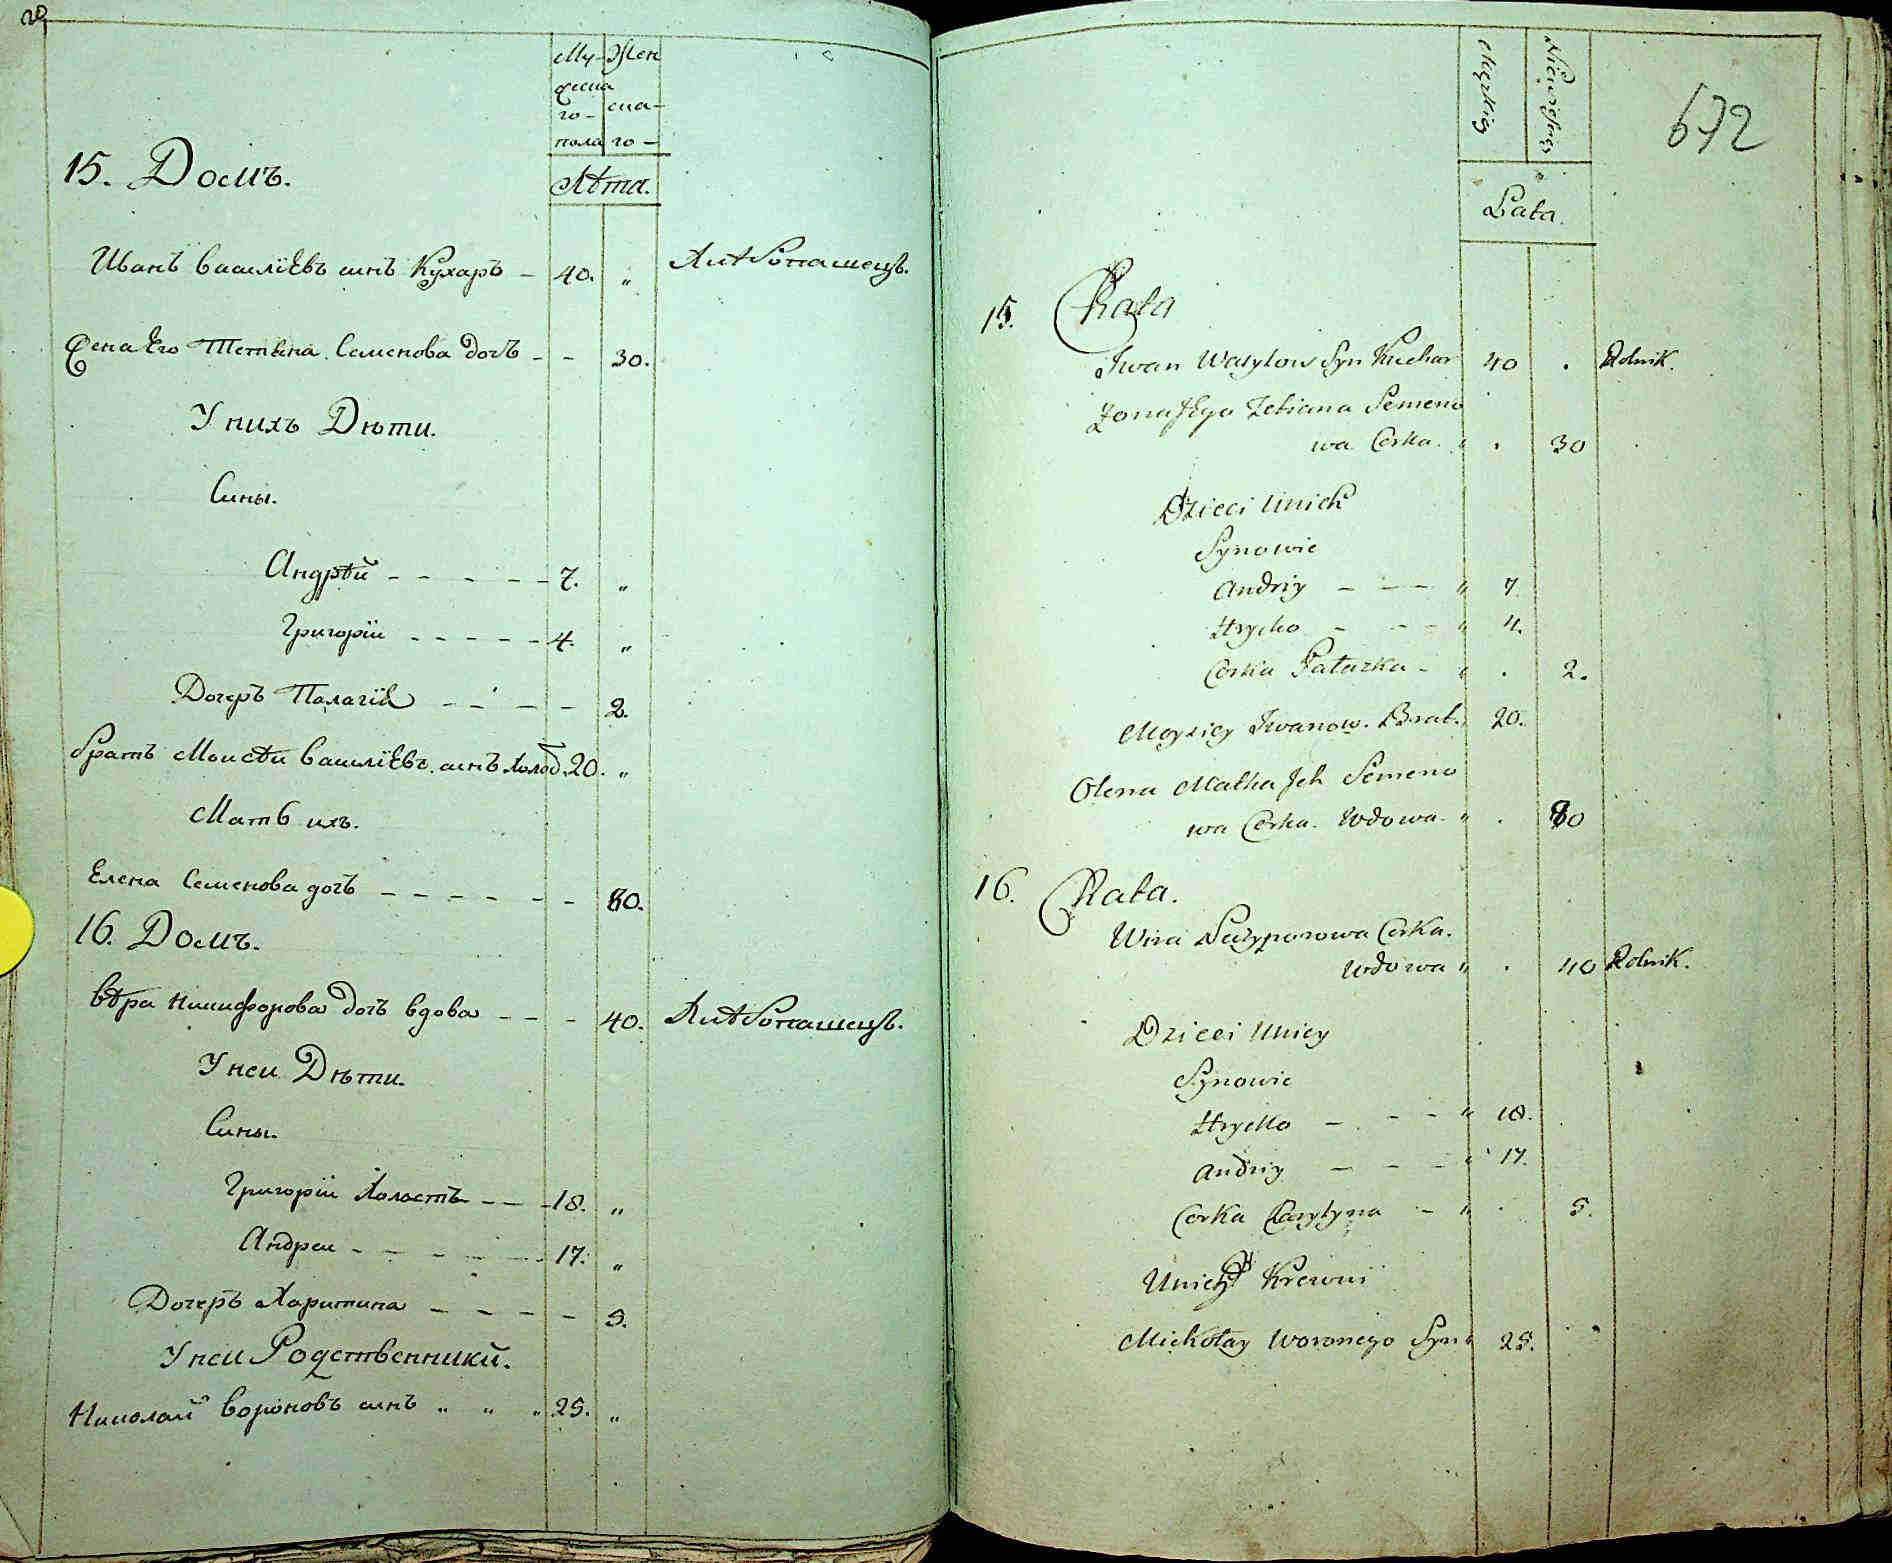 20
Му- Жен
жска
го- ска-
пола го-
Лѣта.
15. Домъ.
Иванъ Василіевъ синъ Кухаръ - 40. „ Хлѣбопашецъ.
Жена Его Тетяна Семенова дочъ - - 30.
У нихъ Дѣти.
Сины.
Андрѣй - - - - - 7. „
Григорій - - - - - 4. „
Дочеръ Палагія - - - - 2.
братъ Моисѣй Василіевъ синъ Холос. 20. „
Мать ихъ.
Елена Семенова дочъ - - - - - - 80.
16. Домъ.
Вѣра Никифорова дочъ вдова - - - 40. Хлѣбопашецъ.
У неи Дѣти.
Сины.
Григорій Холостъ - - - 18. „
Андреи - - - - - - 17. „
Дочеръ Харитина - - - - 5.
У неи Родственники.
Николай вороновъ синъ „ „ „ 25. „
Męzkiey Niewiesciey
Lata.
672
15. Chata
Iwan Wasylow Syn Kuchar 40 . Rolnik.
Zona Jego Tetiana Semeno
wa Corka. „ . 30
Dzieci Unich
Synowie
Andriy - - - „ 7
Hryćko - - - „ 4.
Corka Pałazka - „ . 2.
Moysiey Iwanow. Brat. 20.
Olena Matka Jch Semeno
wa Corka. Wdowa. „ . 80
16. Chata.
Wira Neczyporowa Corka.
Wdowa „ . 40 Rolnik.
Dzieci Uniey
Synowie
Hryćko - - - „ 18.
Andriy - - - „ 17.
Corka Charytyna - „ . 5.
Unich Krewni
Mickołay Woronego Syn „ 25.